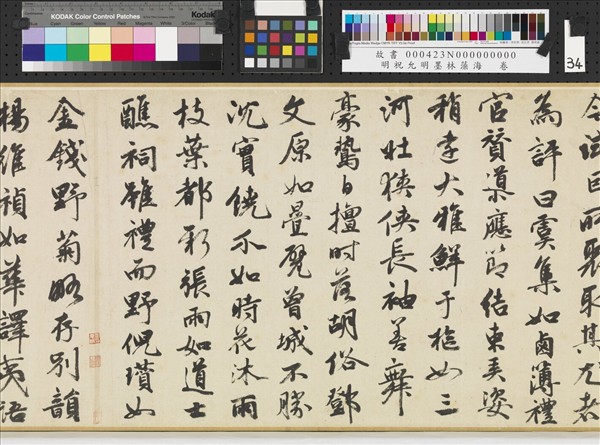 KODAK Color Control Patches
Kodak
故書 000423N000000000
明祝允明墨林藻海 卷
34
取其尤者
為評曰虞集如鹵簿禮
官贊導應節結束美姿
稍乖大雅鮮于樞如三
河壯狹俠長袖善舞
豪鷙自擅時落胡俗鄧
文原如疊甓曾城不勝
沈實饒介如時花沐雨
枝葉都新張雨如道士
醮祠雖禮而野倪瓚如
金錢野菊略存別韻
楊維禎如華譯夷語